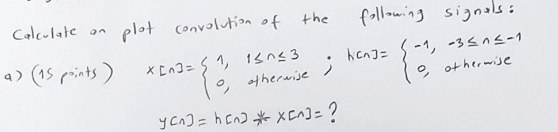 Calculate on plot convolution of the following signals:
a) (15 points) x[n]= { 1, 1≤n≤3 ; h[n]= { -1, -3≤n≤-1
0, otherwise 0, otherwise
y[n]= h[n] * x[n]= ?